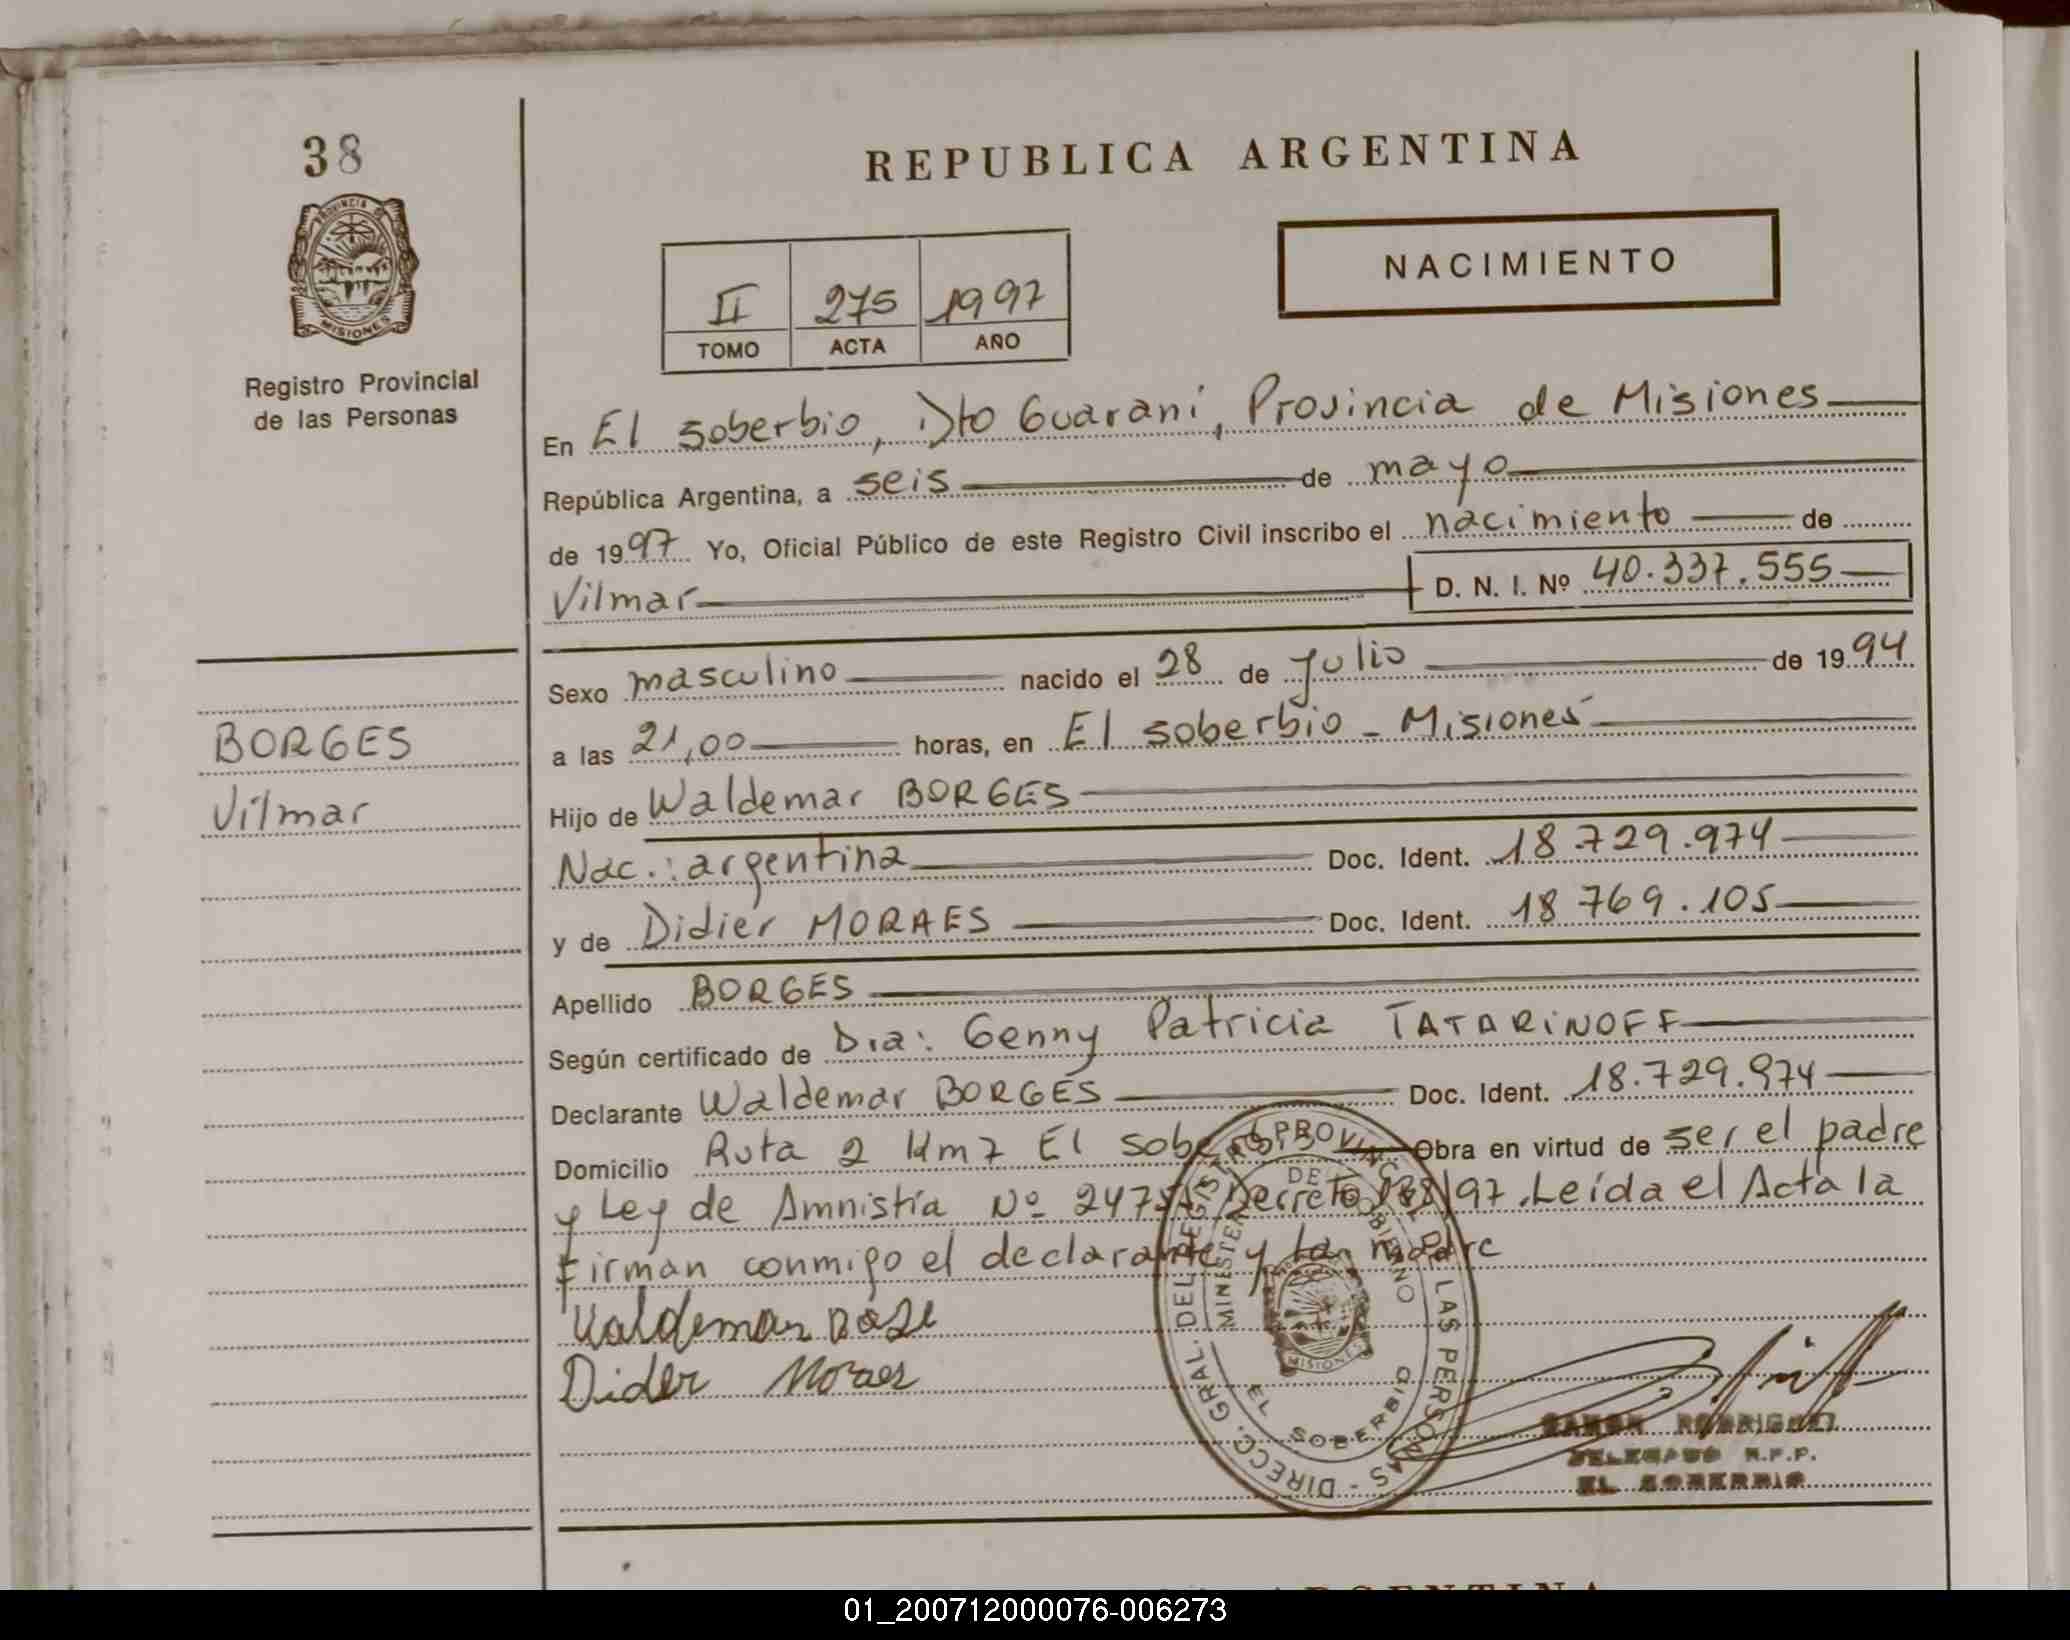 38
PROVINCIA DE
MISIONES
Registro Provincial
de las Personas
BORGES
Vilmar
REPUBLICA ARGENTINA
II 275 1997
TOMO ACTA AÑO
NACIMIENTO
En El Soberbio, Dto Guaraní, Provincia de Misiones
República Argentina, a seis de mayo
de 1997 Yo, Oficial Público de este Registro Civil inscribo el nacimiento de
Vilmar D. N. I. Nº 40.337.555
Sexo masculino nacido el 28 de Julio de 1994
a las 21,00 horas, en El Soberbio - Misiones
Hijo de Waldemar BORGES
Nac.: argentina Doc. Ident. 18.729.974
y de Didier MORAES Doc. Ident. 18 769.105
Apellido BORGES
Según certificado de Dra: Genny Patricia TATARINOFF
Declarante Waldemar BORGES Doc. Ident. 18.729.974
Domicilio Ruta 2 Km 7 El Soberbio Obra en virtud de ser el padre
y Ley de Amnistía Nº Decreto /97. Leída el Acta la
Firman conmigo el declarante y la madre
Dider Moraes
DIRECC. GRAL. DEL REGISTRO PROVINCIAL DE LAS PERSONAS
MINISTERIO DE GOBIERNO
MISIONES
EL SOBERBIO
RAMON RODRIGUEZ
DELEGADO R.P.P.
EL SOBERBIO
ARGENTINA
01_200712000076-006273